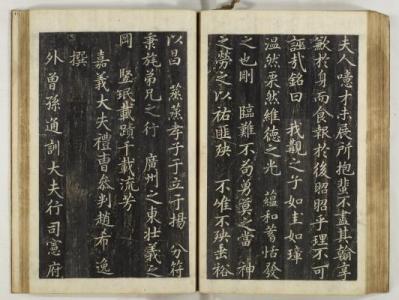 夫人噫才未展所抱蓋不盡其翰享
歉於身而食報於後昭昭乎理不可
誣哉銘曰 我觀之子如圭如璋
溫然栗然維德之光 蘊和蓄恬發
之也剛 臨難不苟勇莫之當 神
之勞之以祐匪殃 不惟不殃垂裕
以昌 烝烝孝子于立于揚 分符
秉旄弟兄之行 廣州之東壯義之
岡 竪珉載蹟千載流芳
嘉義大夫禮曹參判趙希逸
撰
外曾孫通訓大夫行司憲府